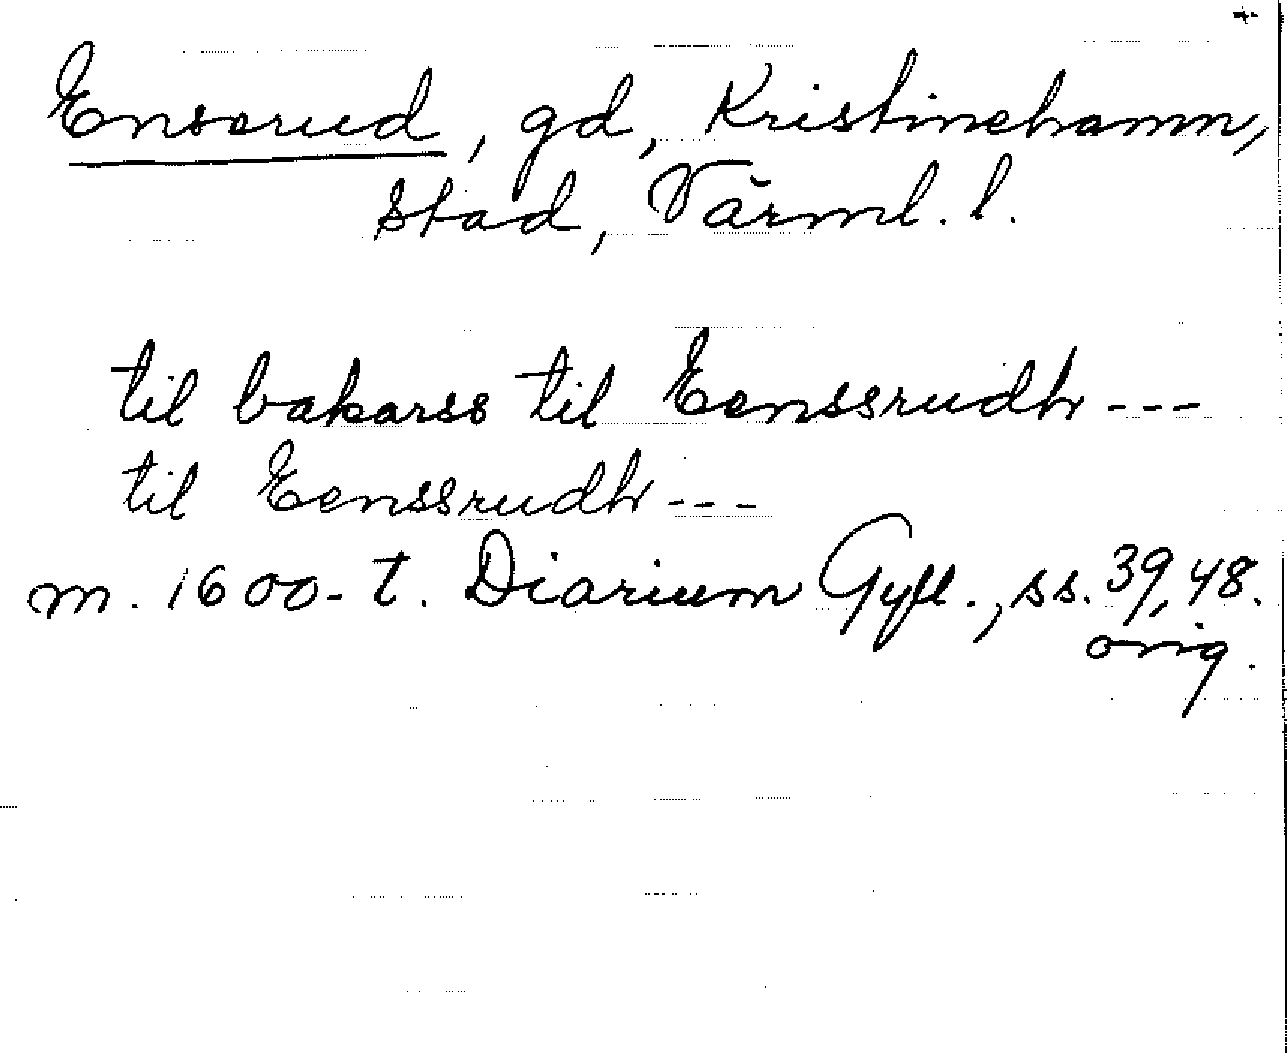 Enserud, gd, Kristinehamn,
stad, Värml. l.
til bakarss til Eenssrudh ---
til Eenssrudh ---
m. 1600-t. Diarium Gyll., ss. 39, 48.
orig.